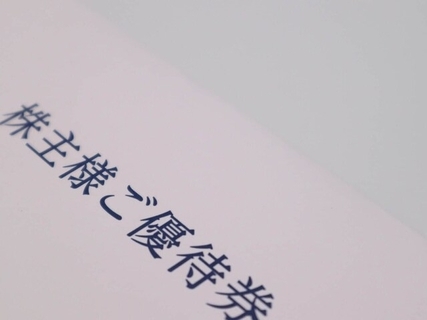 株主様ご優待券